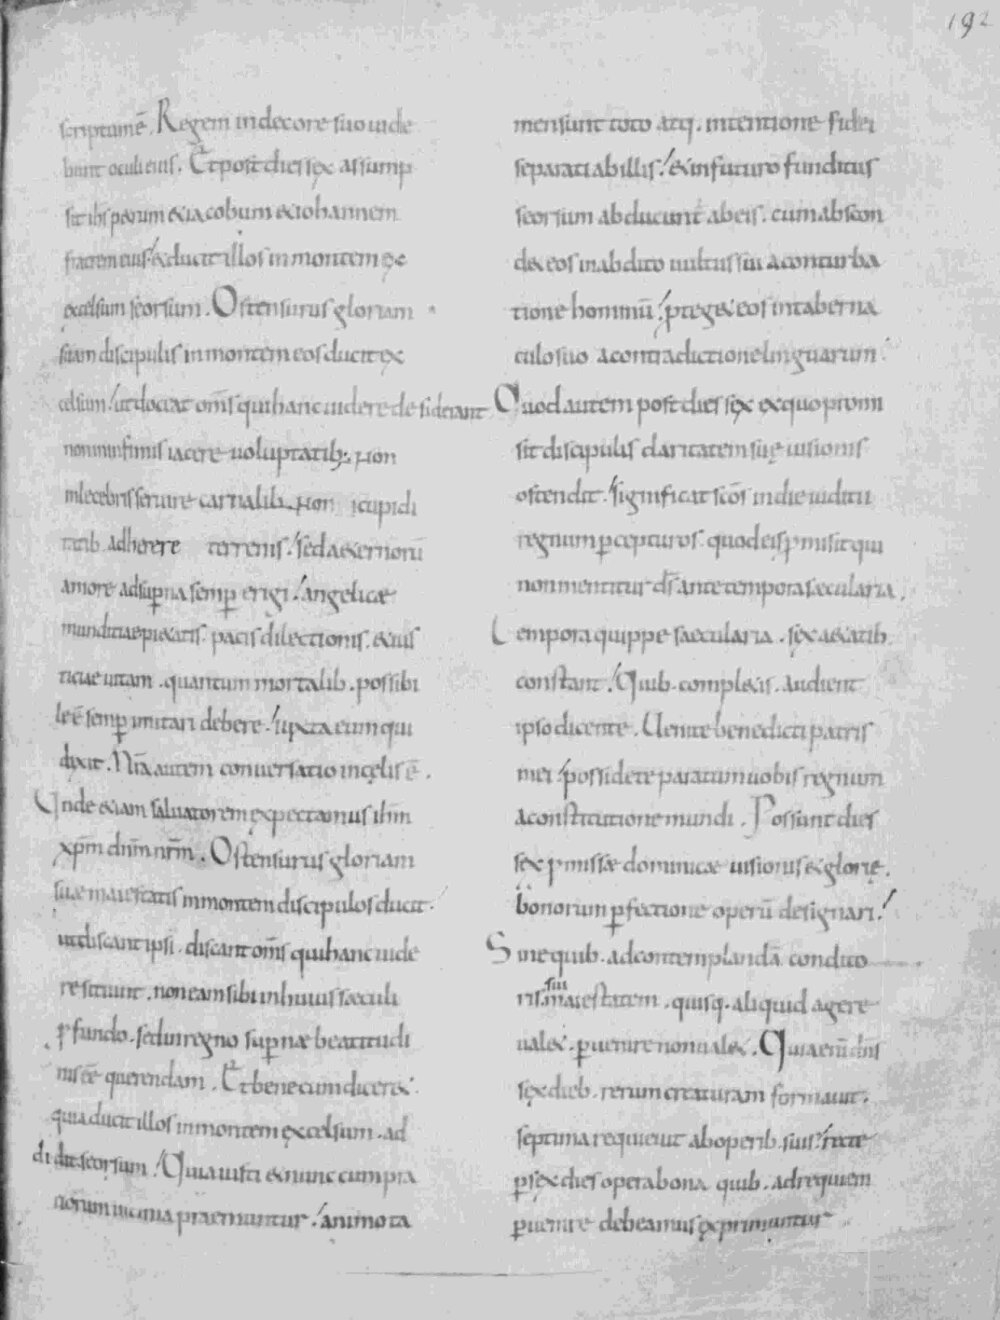 192
scriptum ē. Regem in decore suo uide
bunt oculi eius. Et post dies sex assump
sit ihs petrum & iacobum & iohannem
fratrem eius. & ducit illos in montem ex
excelsum seorsum. Ostensurus gloriam
suam discipulis in montem eos ducit ex
celsum. ut doceat om̄s qui hanc uidere desiderant
non in infimis iacere uoluptatib; non
inlecebris seruire carnalib. non cupidi
tatib. adherere terrenis. sed a&ernorū
amore ad sup̱na semp̱ erigi. angelicae
munditiae pi&atis. pacis dilectionis. & ius
ticiae uitam. quantum mortalib. possibi
le ē semp̱ imitari debere. iuxta eum qui
dixit. Nr̄a autem conuersatio in cęlis ē.
Unde &iam saluatorem expectamus ih̄m
xp̄m dn̄m nr̄m. Ostensurus gloriam
suae maiestatis in montem discipulos ducit.
ut discant ipsi. discant om̄s qui hanc uide
re sitiunt. non eam sibi in huius saeculi
ꝓfundo. sed in regno sup̱nae beatitudi
nis ēē querendam. Et bene cum dicer&
quia ducit illos in montem excelsum. ad
didit seorsum. Quia iusti & nunc cum pra
uorum uicinia praemuntur. animo ta
men sunt toto atq. intentione fidei
separati ab illis. & in futuro funditus
seorsum abducunt̄ ab eis. cum abscon
d& eos in abdito uultus sui a conturba
tione hominū. ꝓteg& eos in taberna
culo suo a contradictione linguarum.
Quod autem post dies sex ex quo promi
sit discipulis claritatem suę uisionis
ostendit. significat sc̄os in die iudicii
regnum p̱cepturos. quod eis ꝓmisit qui
non mentitur d̄s ante tempora saecularia.
Tempora quippe saecularia. sex a&atib.
constant. Quib. compl&is. audient
ipso dicente. Uenite benedicti patris
mei. possidete paratum uobis regnum
a constitutione mundi. Possunt dies
sex ꝓmissae dominicae uisionis & glorię.
bonorum p̱fectione operū designari.
Sine quib. ad contemplandā condito
ris sui maiestatem. quisq. aliquid agere
ual&. p̱uenire non ual&. Quia enī dn̄s
sex dieb. rerum creaturam formauit.
septima requieuit ab operib. suis. recte
p̱ sex dies opera bona quib. ad requiem
p̱uenire debeamus exprimuntur